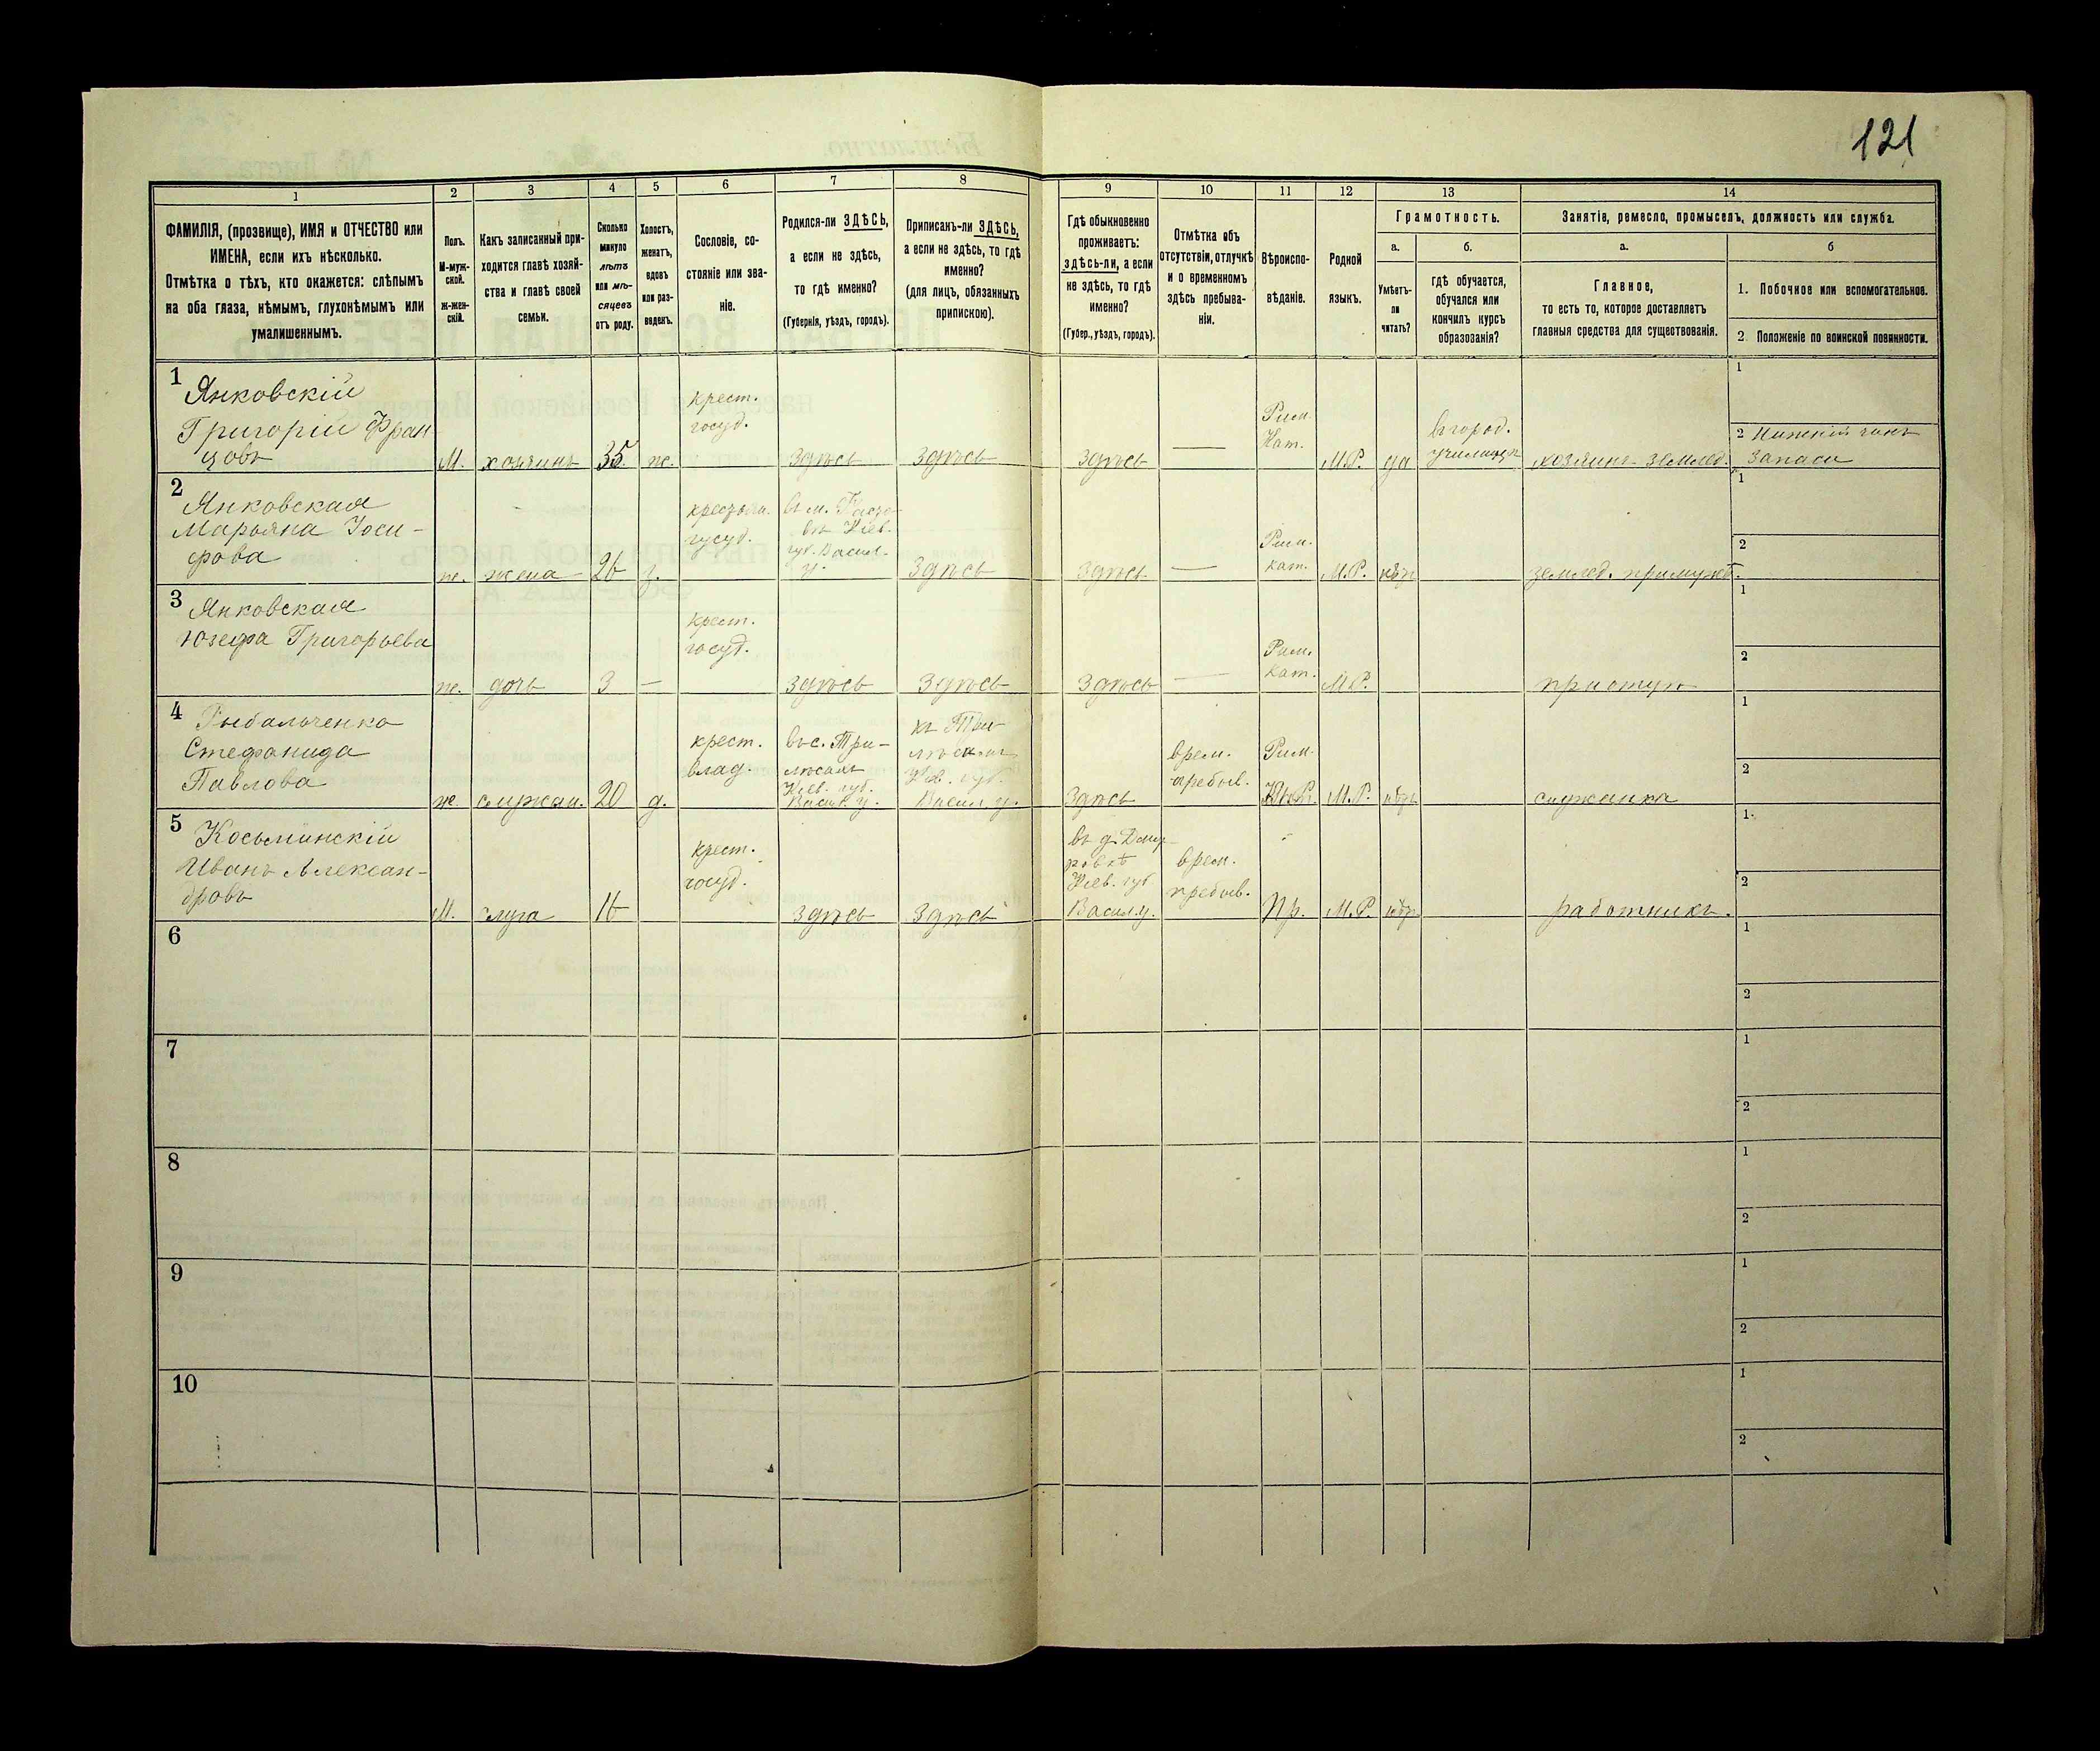 121
1
2
3
4
5
6
7
8
9
10
11
12
13
14
ФАМИЛІЯ, (прозвище), ИМЯ и ОТЧЕСТВО или
ИМЕНА, если ихъ нѣсколько.
Отмѣтка о тѣхъ, кто окажется: слѣпымъ
на оба глаза, нѣмымъ, глухонѣмымъ или
умалишеннымъ.
Полъ.
М-муж-
ской.
ж-жен-
скій.
Какъ записанный при-
ходится главѣ хозяй-
ства и главѣ своей
семьи.
Сколько
минуло
лѣтъ
или мѣ-
сяцевъ
отъ роду.
Холостъ,
женатъ,
вдовъ
или раз-
веденъ.
Сословіе, со-
стояніе или зва-
ніе.
Родился-ли ЗДѢСЬ,
а если не здѣсь,
то гдѣ именно?
(Губернія, уѣздъ, городъ).
Приписанъ-ли ЗДѢСЬ,
а если не здѣсь, то гдѣ
именно?
(для лицъ, обязанныхъ
припискою).
Гдѣ обыкновенно
проживаетъ:
здѣсь-ли, а если
не здѣсь, то гдѣ
именно?
(Губер., уѣздъ, городъ).
Отмѣтка объ
отсутствіи, отлучкѣ
и о временномъ
здѣсь пребыва-
ніи.
Вѣроиспо-
вѣданіе.
Родной
языкъ.
Грамотность.
а.
б.
Умѣетъ-
ли
читать?
гдѣ обучается,
обучался или
кончилъ курсъ
образозанія?
Занятіе, ремесло, промыселъ, должность или служба.
а.
б
Главное,
то есть то, которое доставляетъ
главныя средства для существованія.
1. Побочное или вспомогательное.
2. Положеніе по воинской повинности.
1
Янковскій
Григорій Фран
цовъ
М.
хозяинъ
35
ж.
крест.
госуд.
здѣсь
здѣсь
здѣсь
—
Рим.
Кат.
М.Р.
да
въ город.
училищѣ
хозяинъ землед.
1
2 Нижній чинъ
запаса
2
Янковская
Марьяна Іоси-
фова
ж.
жена
26
з.
госуд.
Кіев.
губ. Васил.
у.
здѣсь
здѣсь
—
Рим.
кат.
М.Р.
нѣтъ
землед. при мужѣ.
1
2
3
Янковская
Юзефа Григорьева
ж.
дочь
3
—
крест.
госуд.
здѣсь
здѣсь
здѣсь
—
Рим.
кат.
М.Р.
1
2
4
Рыбальченко
Стефанида
Павлова
ж.
служан.
20
д.
крест.
влад.
въ с. Три-
лѣсахъ
Кіев. губ.
Васил. у.
къ Три-
Васил. у.
здѣсь
врем.
пребыв.
Рим.
М.Р.
нѣтъ
служанка
1
2
5
Косьминскій
Иванъ Алексан-
дровъ
М.
слуга
16
крест.
госуд.
здѣсь
здѣсь
въ д.
Кіев. губ
Васил. у.
врем.
пребыв.
Пр.
М.Р.
нѣтъ
работникъ.
1
2
6
1
2
7
1
2
8
1
2
9
1
2
10
1
2